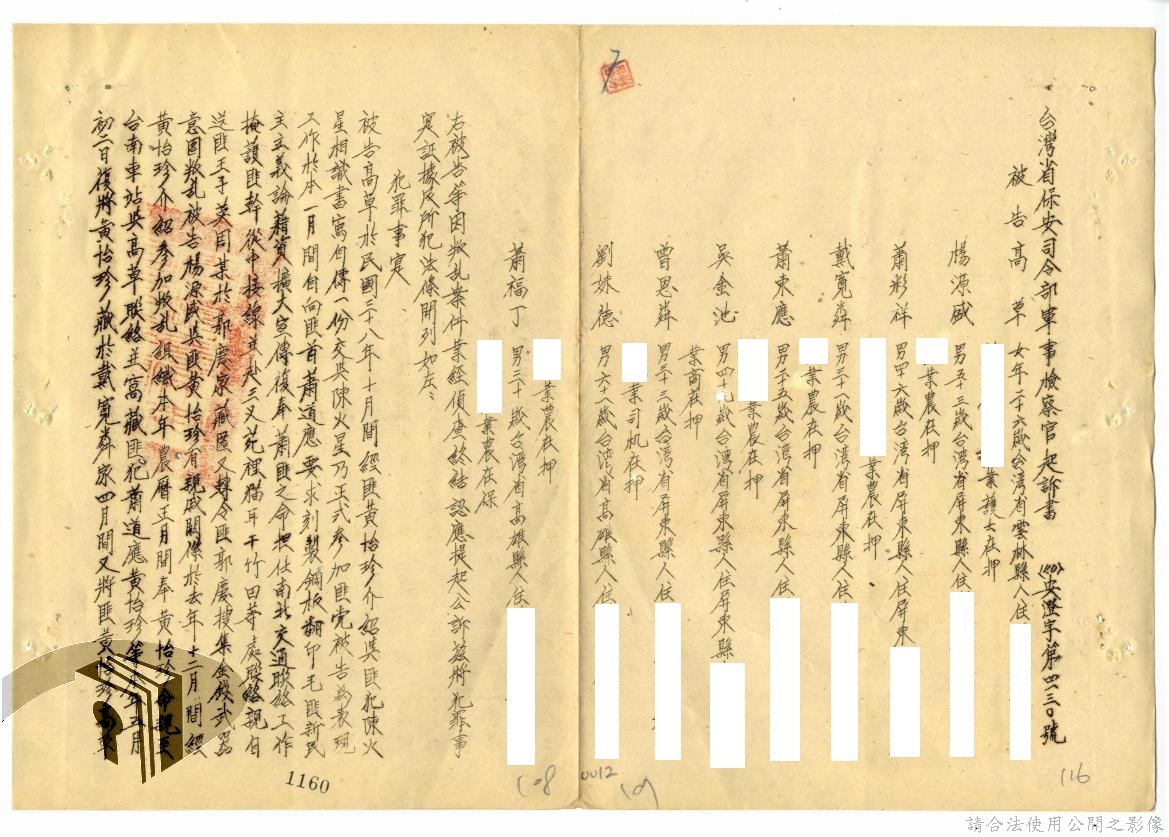 台灣省保安司令部軍事檢察官起訴書
(40)安澄字第四二三〇號
被告高草 女年二十六歲台灣省雲林縣人住
業護士在押
楊源盛 男五十三歲台湾省屏東縣人住
業農在押
蕭彩祥 男四六歲台湾省屏東縣人住屏東
業農在押
戴寬舜 男三十一歲台湾省屏東縣人住
業農在押
蕭東應 男二十五歲台湾省屏東縣人住
業農在押
吳金池 男四十九歲台湾省屏東縣人住屏東縣
業商在押
曾恩舜 男三十三歲台湾省屏東縣人住
業司机在押
劉妹德 男六十一歲台湾省高雄縣人住
業農在押
蕭福丁 男三十歲台湾省高雄縣人住
業農在保
右被告等因叛乱案件業經偵查終結認應提起公訴茲將犯罪事
実証據及所犯法條開列如左:
犯罪事实
被告高草於民國三十八年十月間經匪黃怡珍介紹與匪犯陳火
星相識書寫自傳一份交與陳火星乃正式參加匪党被告為表現
工作於本一月間自向匪首蕭道應要求刻製鋼板翻印毛匪新民
主主義論藉資擴大宣傳復奉蕭匪之命担任南北交通股絡工作
掩護匪幹從中接線其赴三义苑裡猫耳干竹田等處聯絡親自
送匪王子英周某於郭慶家藏匿又轉令匪郭慶搜集金錢武器
意圖叛乱被告楊源盛與匪黃怡珍有親戚関係於去年十二月間經
黃怡珍介紹參加叛乱組織本年農曆正月間奉黃怡珍命親至
台南車站與高草联絡並窩藏匪犯蕭道應黃怡珍等本年五月
初二日復將黃怡珍藏於戴寬舜家四月間又將匪黃怡珍高草
1160
1-8
0012
116
請合法使用公開之影像